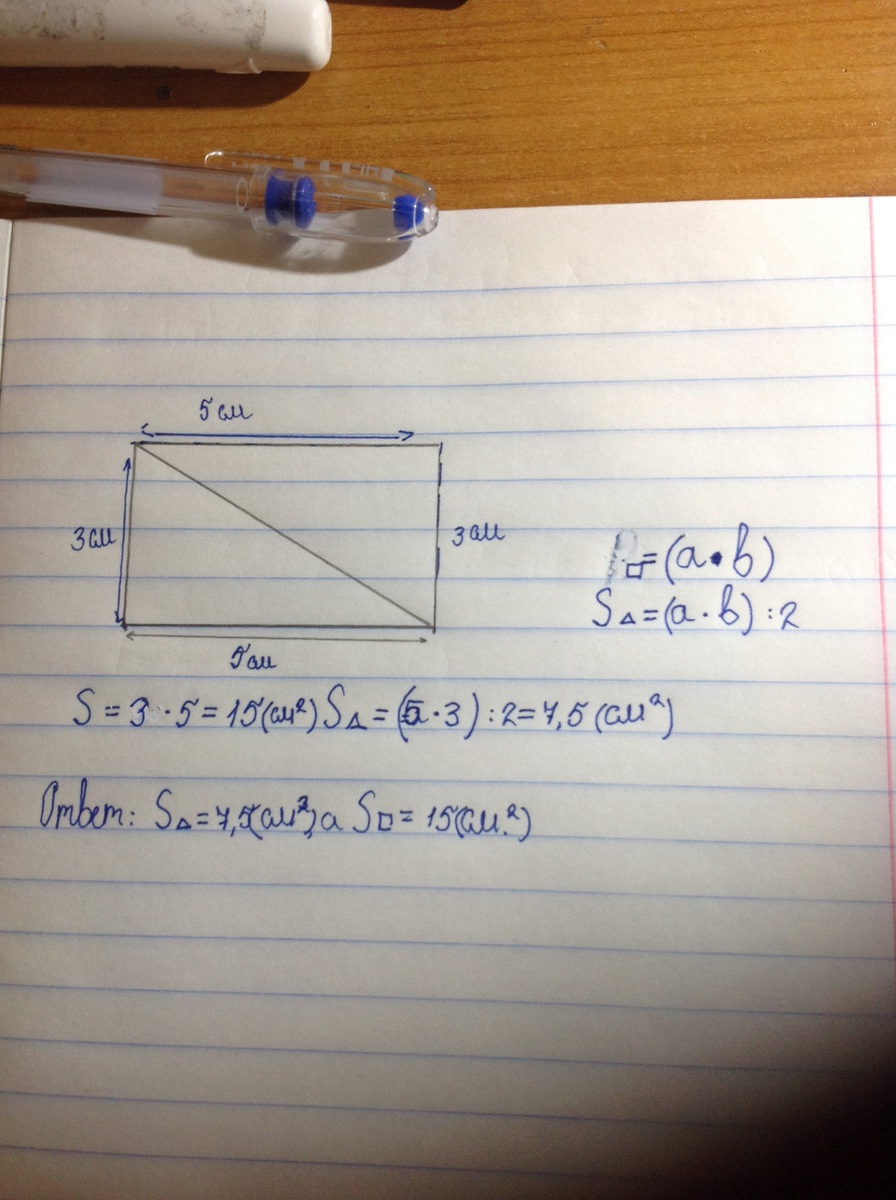 5 см
3 см
3 см
5 см
P□=(a·b)
S△=(a·b):2
S=3·5=15(см²) S△=(5·3):2=7,5(см²)
Ответ: S△=7,5(см², а S□=15(см.²)